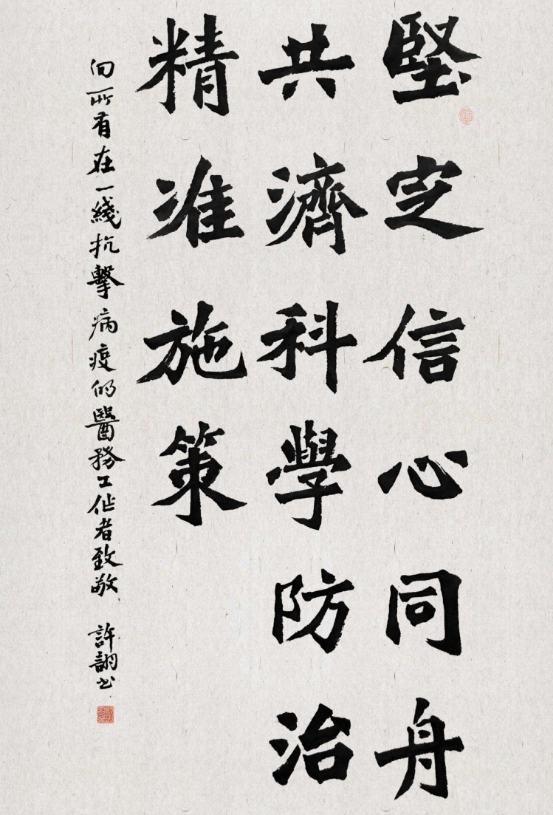 堅定信心同舟
共濟科學防治
精准施策
向所有在一綫抗擊病疫的醫務工作者致敬 許翮書